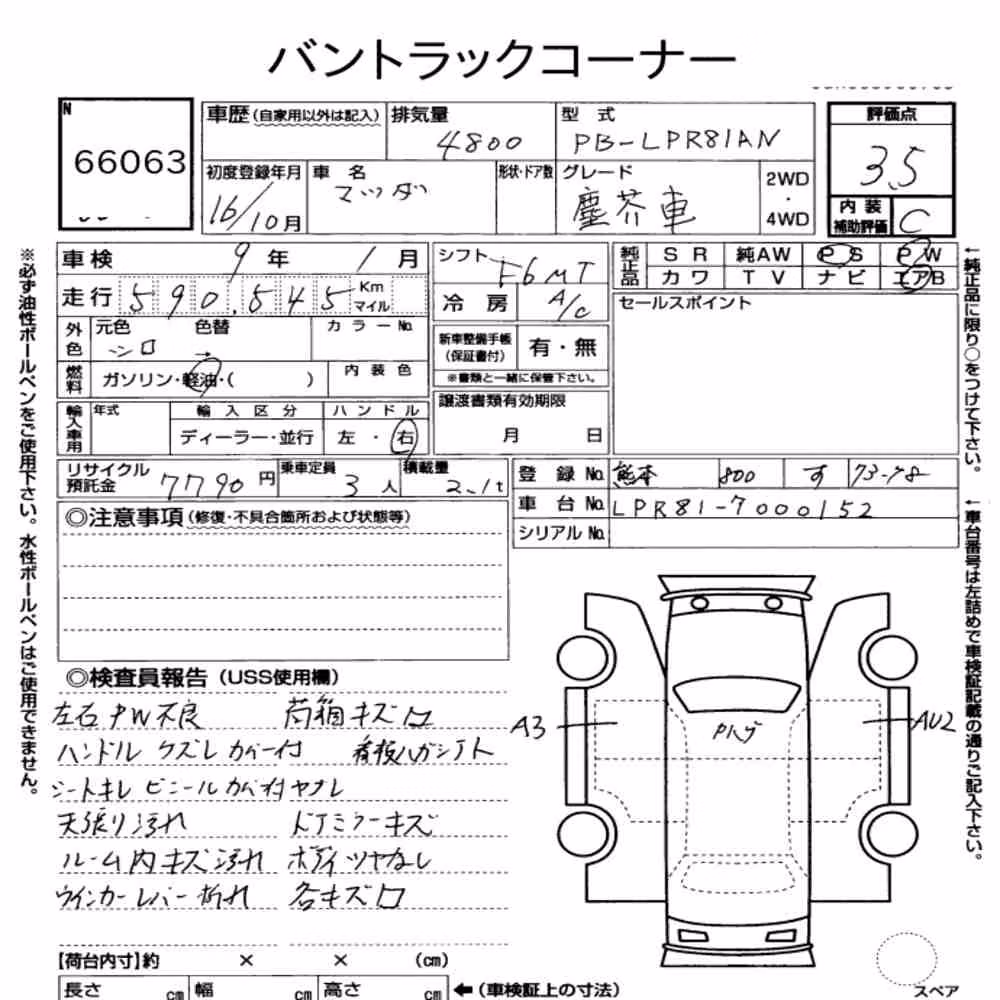 バントラックコーナー
N
66063
車歴(自家用以外は記入)
排気量
4800
型 式
PB-LPR81AN
評価点
3.5
初度登録年月
16/10月
車 名
マツダ
形状・ドア数
グレード
塵芥車
2WD
・
4WD
内 装
補助評価
C
車 検 9 年 1 月
シフト F6MT
純正品
S R 純AW P S P W
カワ T V ナビ エアB
走行 590,545 Km
マイル
冷 房 A/C
セールスポイント
外色
元色 シロ
色替 →
カラーNo.
新車整備手帳
(保証書付)
有・無
※書類と一緒に保管下さい。
燃料
ガソリン・軽油・( )
内 装 色
輸入車用
年式
輸 入 区 分
ディーラー・並行
ハ ン ド ル
左 ・ 右
譲渡書類有効期限
月 日
リサイクル
預託金
7790円
乗車定員
3人
積載量
2.1t
登 録 No. 熊本 800 す 73-78
車 台 No. LPR81-7000152
シリアル No.
◎注意事項(修復・不具合箇所および状態等)
◎検査員報告(USS使用欄)
左右PW不良 荷箱キズ凹
ハンドル クズレ カバー付 看板ハガシアト
シートキレ ビニールカバー付ヤブレ
天張り汚れ ドアミラーキズ
ルーム内キズ汚れ ボディツヤなし
ウインカーレバー折れ 各キズ凹
A3
AU2
【荷台内寸】約 × × (cm)
長さ cm 幅 cm 高さ cm ←(車検証上の寸法)
スペア
※必ず油性ボールペンをご使用下さい。水性ボールペンはご使用できません。
←純正品に限り○をつけて下さい。
←車台番号は左詰めで車検証記載の通りご記入下さい。